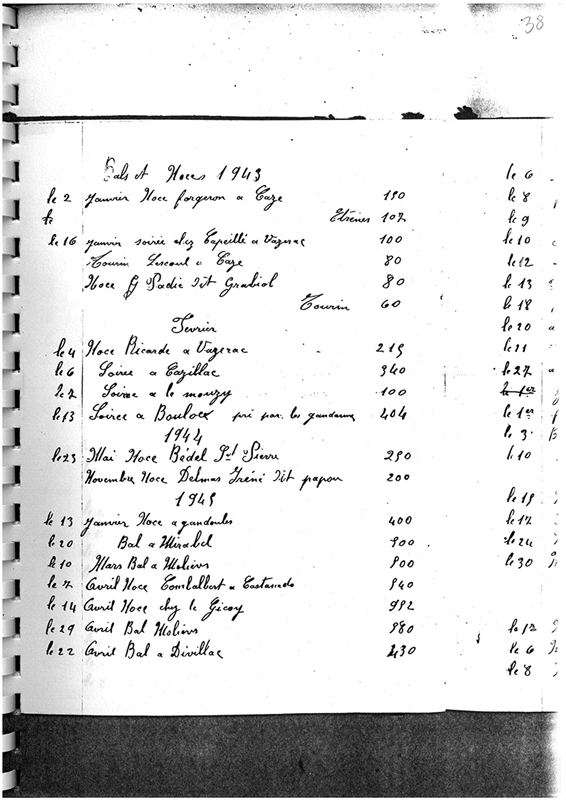 38
Bals et Noces 1943
le 2 janvier Noce forgeron a Caze 150
le Etrènes 107
le 16 janvier soirée chez Capeillé a Vazerac 100
Tourin Lescoul a Caze 80
Noce G Padié dit Grabiol 80
Tourin 60
Fevrier
le 4 Noce Ricarde a Vazerac 215
le 6 Soirée a Cazillac 340
le 7 Soirée a le mouzy 100
le 13 Soirée a Bouloex pri par les gendarmes 404
1944
le 23 Mai Noce Bedel St Pierre 250
Novembre Noce Delmas Iréné dit papou 200
1945
le 13 janvier Noce a gandoules 400
le 20 Bal a Mirabel 500
le 10 Mars Bal a Molières 500
le 7 Avril Noce Combalbert a Castanede 540
le 14 Avril Noce chez le Gicoy 552
le 29 Avril Bal Molières 580
le 22 Avril Bal a Divillac 430
le 6
le 8
le 9
le 10
le 12
le 13
le 18
le 20
le 21
le 27
le 1er
le 1er
le 3
le 10
le 15
le 17
le 24
le 30
le 12
le 6
le 8